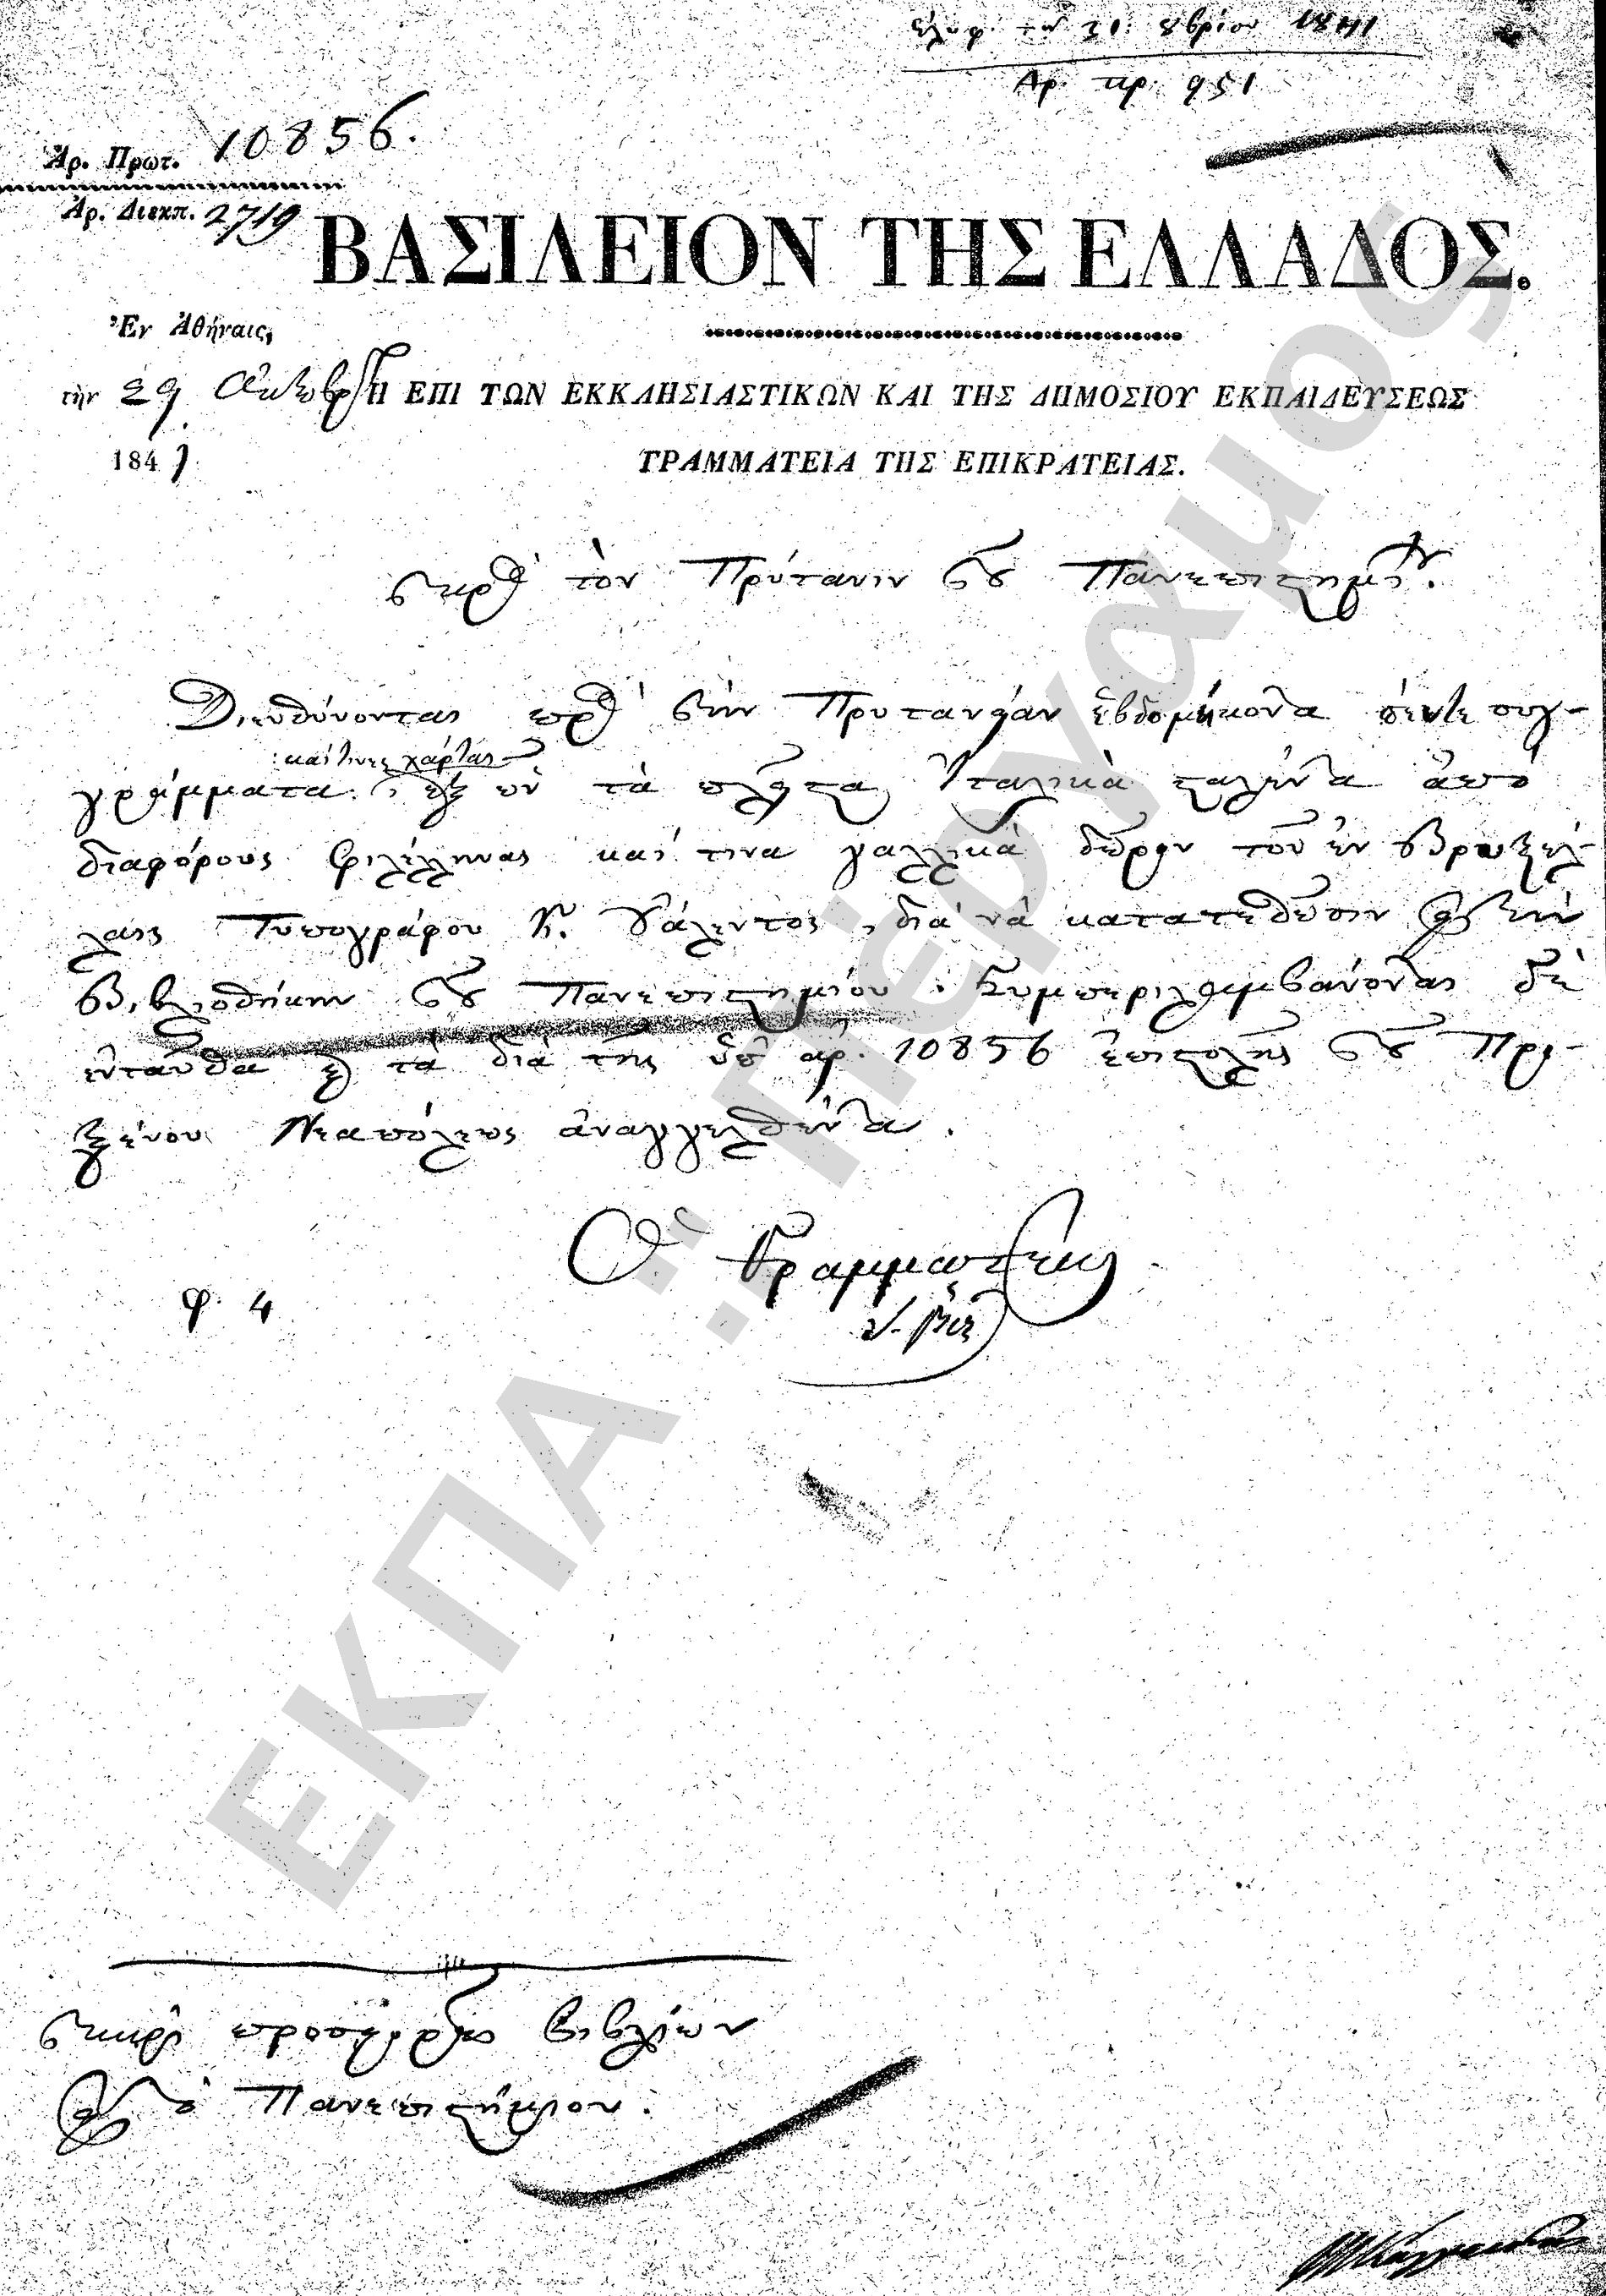 Ἐλήφ. τῇ 31 8βρίου 1841
Ἀρ. πρ. 951
Ἀρ. Πρωτ. 10856.
Ἀρ. Διεκπ. 2719
ΒΑΣΙΛΕΙΟΝ ΤΗΣ ΕΛΛΑΔΟΣ.
Ἐν Ἀθήναις,
τὴν 29 Ὀκτωβρ
Η ΕΠΙ ΤΩΝ ΕΚΚΛΗΣΙΑΣΤΙΚΩΝ ΚΑΙ ΤΗΣ ΔΗΜΟΣΙΟΥ ΕΚΠΑΙΔΕΥΣΕΩΣ
1841
ΓΡΑΜΜΑΤΕΙΑ ΤΗΣ ΕΠΙΚΡΑΤΕΙΑΣ.
πρὸς τὸν Πρύτανιν τοῦ Πανεπιστημίου.
Διευθύνονται πρὸς τὴν Πρυτανείαν ἑβδομήκοντα πέντε συγ-
καί τινες χάρται
γράμματα, ἐξ ὧν τὰ πλεῖστα Ἰταλικὰ σταλέντα ἀπὸ
διαφόρους φιλέλληνας καί τινα γαλλικὰ δῶρον τοῦ ἐν Βρυξέλ-
λαις Τυπογράφου Κ. Βάλεντος, διὰ νὰ κατατεθῶσιν εἰς τὴν
Βιβλιοθήκην τοῦ Πανεπιστημίου. Συμπεριλαμβάνονται δὲ
ἐνταῦθα καὶ τὰ διὰ τῆς ὑπ' ἀρ. 10856 ἐπιστολῆς τοῦ Προ-
ξένου Νεαπόλεως ἀναγγελθέντα.
Ὁ Γραμματεὺς
φ. 4
περὶ προσφορᾶς βιβλίων
εἰς τὸ Πανεπιστήμιον.
ΕΚΠΑ "Πέργαμος"